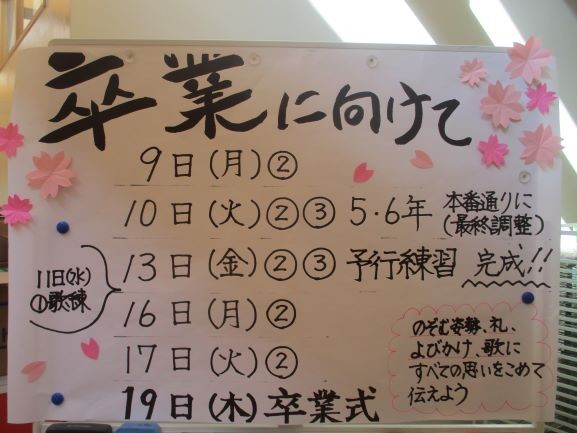 卒業に向けて
9日(月)②
10日(火)②③ 5・6年 本番通りに
(最終調整)
11日(水)
①歌練
13日(金)②③ 予行練習 完成!!
16日(月)②
17日(火)②
19日(木)卒業式
のぞむ姿勢、礼、
よびかけ、歌に
すべての思いをこめて
伝えよう